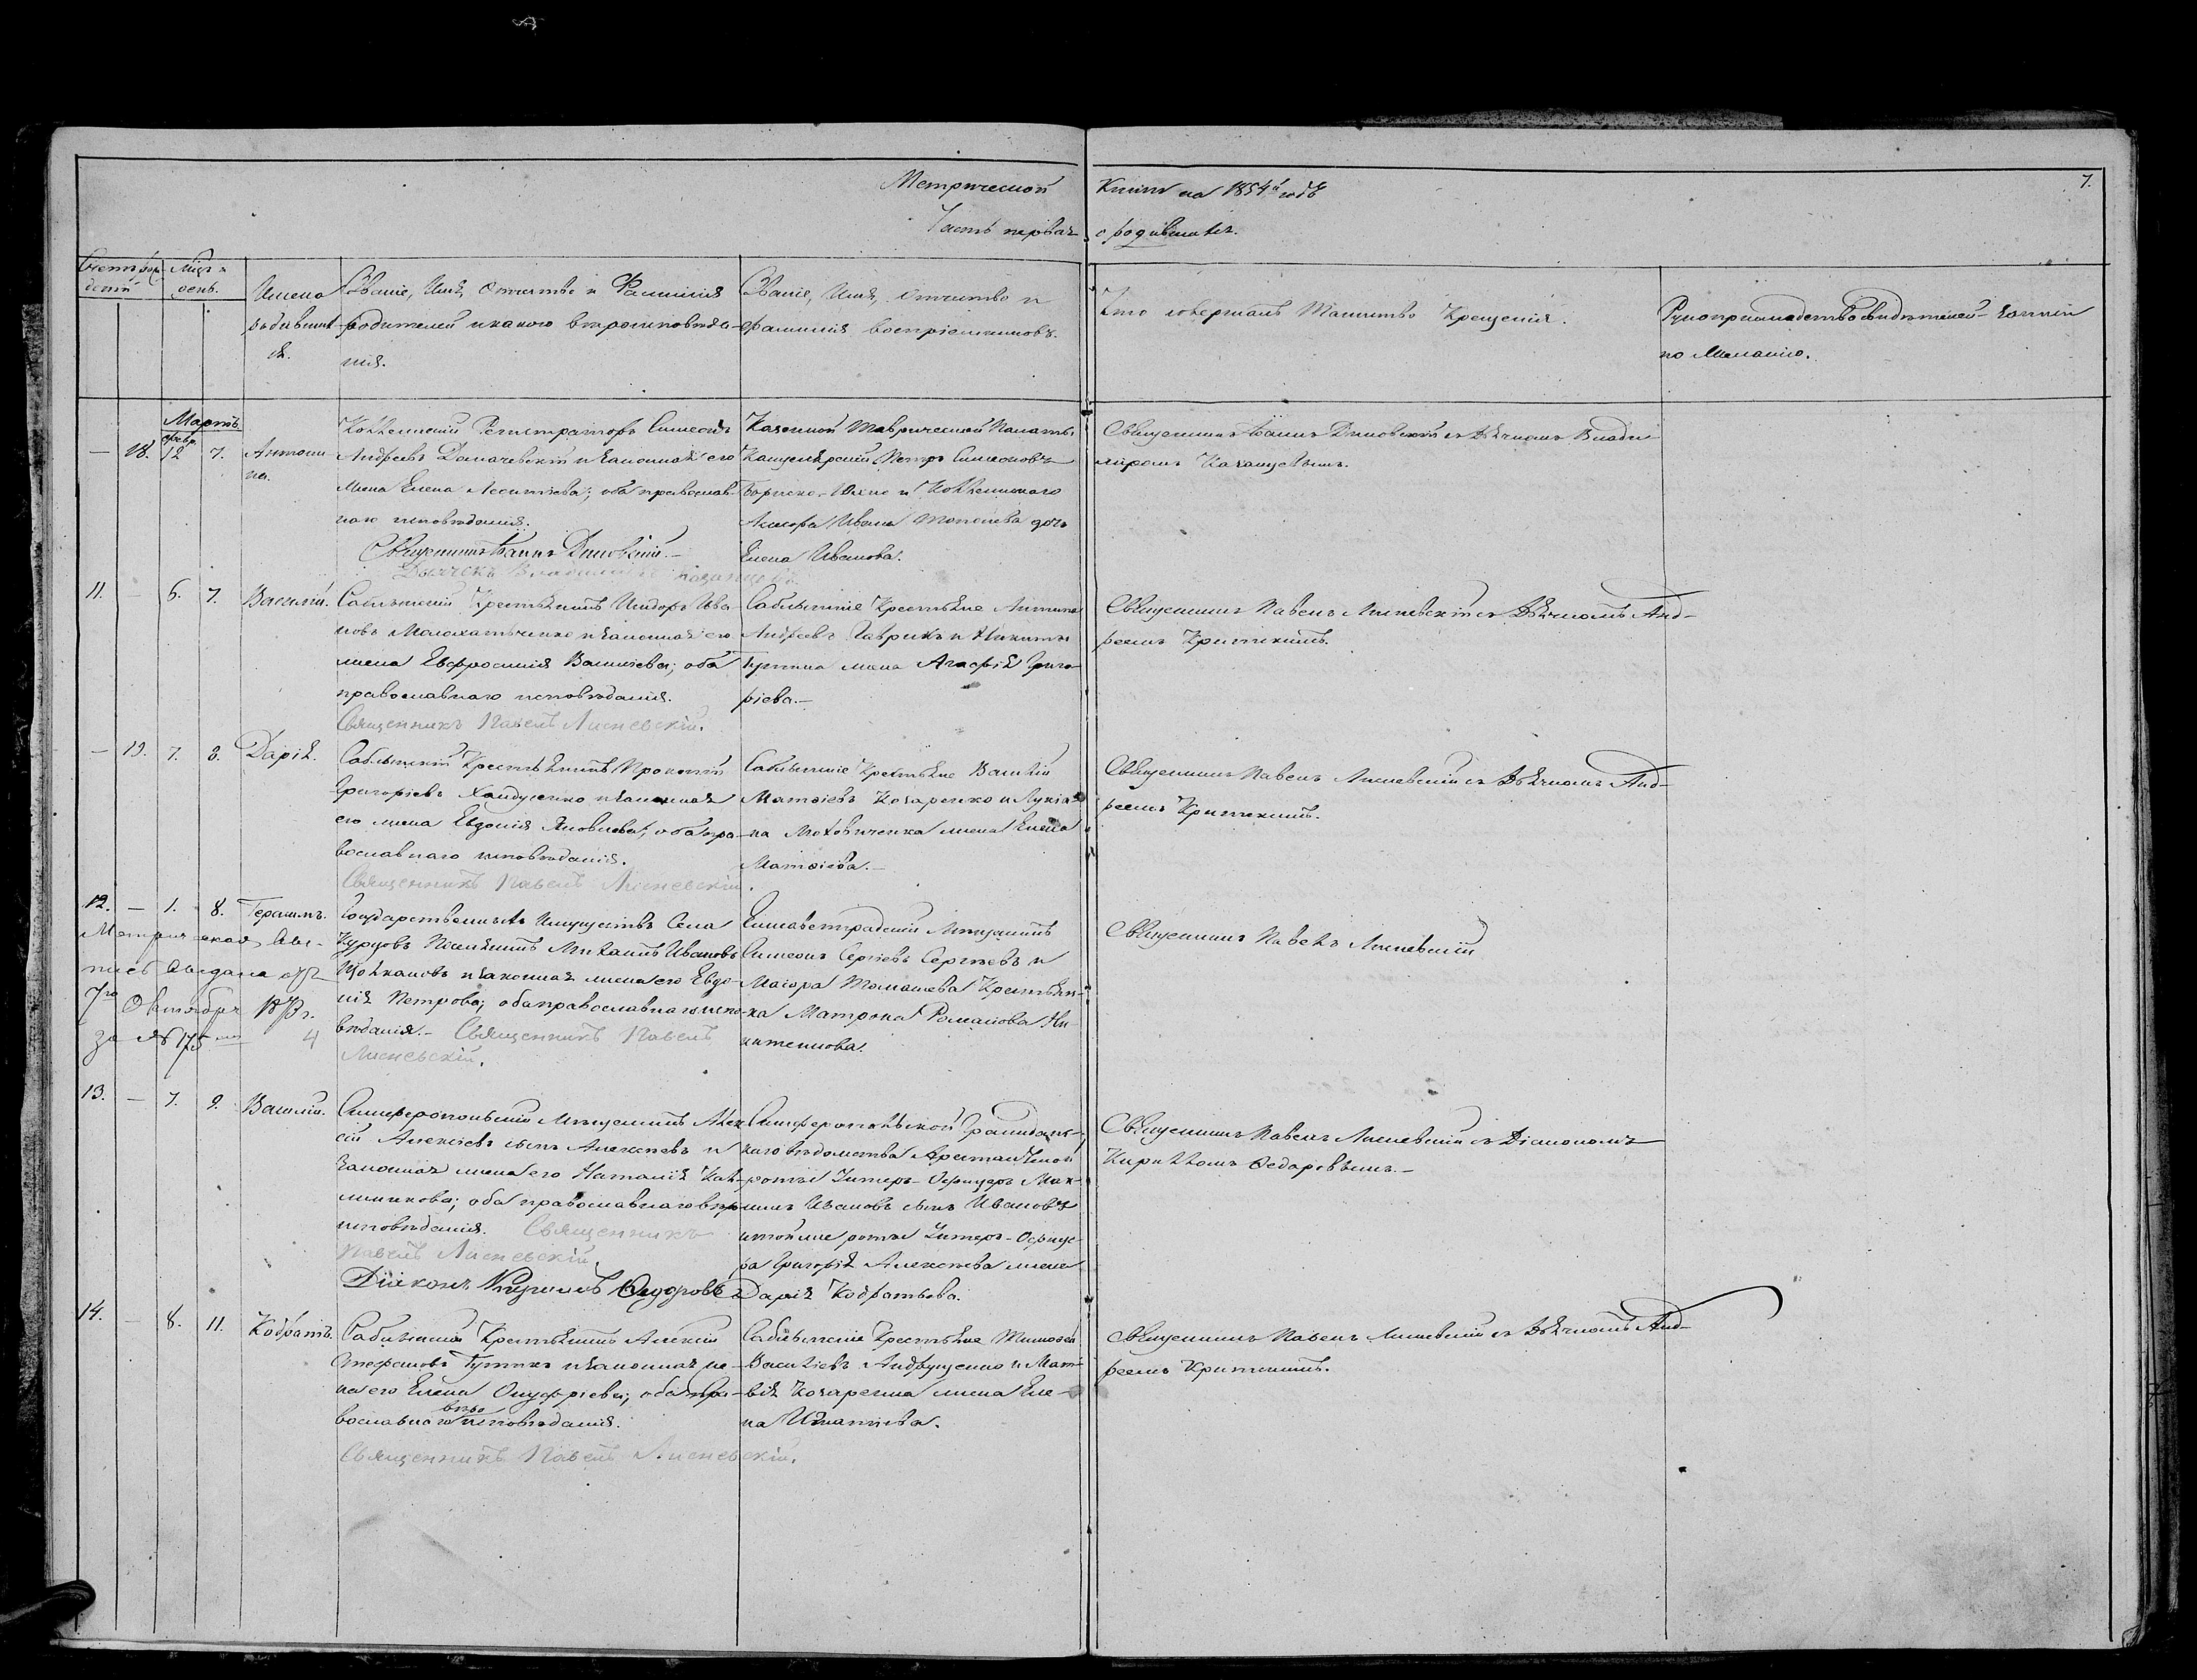 Метрической Книги на 1854й годъ
7.
Часть первая о родившихся.
Счетъ рож-
детй
Мцъ и
день.
Имена
родивших
ся.
Званіе, Имя, Отчество и Фамилія
родителей и какого вѣроисповѣда-
нія.
Званіе, Имя, Отчество и
фамилія воспріемниковъ.
Кто совершалъ Таинство Крещенія.
Рукоприкладство свидѣтелей записи
по желанію.
Мартъ.
февр.
— 18. 12 7. Антони
на.
Коллежскій Регистраторъ Симеонъ
Андреевъ Домачевскій и законная его
жена Елена Леонтіева; оба православ-
наго исповѣданія.
Священникъ Іоаннъ Диковскій.—
Дьячекъ Владиміръ Казанцевъ.
Казенной Таврической Палаты
Канцелярскій Петръ Симеоновъ
и Коллежскаго
Ассесора Ивана дочь
Елена Иванова.
Священникъ Іоаннъ Диковскій съ Дьячкомъ Влади
міромъ Казанцевымъ.
11. — 6. 7. Василій.
Саблынскій Крестьянинъ Исидоръ Ива-
новъ и законная его
жена Евфросинія Василіева; оба
православнаго исповѣданія.
Священникъ Павелъ Лисневскій.
Саблынскіе Крестьяне Антипа
Андреевъ Гаврикъ и Никиты
жена Агафія Григо-
ріева.—
Священникъ Павелъ Лисневскій съ Дьячкомъ Анд-
реемъ Критскимъ.
— 19. 7. 8. Дарія.
Саблынскій Крестьянинъ Прокопій
Григоріевъ и законная
его жена Евдокія Яковлева; оба пра-
вославнаго исповѣданія.
Священникъ Павелъ Лисневскій.
Саблынскіе Крестьяне Василій
Матѳіевъ Козаренко и Лукія-
на жена Елена
Матѳіева.—
Священникъ Павелъ Лисневскій съ Дьячкомъ Анд-
реемъ Критскимъ.
12. — 1. 8. Герасимъ.
Метрическая Вы-
пись выдана
7го Октября
за № 175
Государственныхъ Имуществъ Села
Курцовъ Поселянинъ Михаилъ Ивановъ
и законная жена его Евдо-
кія Петрова; оба православнаго испо-
вѣданія.— Священникъ Павелъ
Лисневскій.
Елисаветградскій Мѣщанинъ
Симеонъ Сергіевъ Сергѣевъ и
Маіора Томашева Крестьян-
ка Матрона Романова Ни-
китенкова.
Священникъ Павелъ Лисневскій
13. — 7. 9. Василій.
Симферопольскій Мѣщанинъ Алек
сій Алексіевъ сынъ Алексѣевъ и
законная жена его Наталія Кал-
линикова; оба православнаго вѣро
исповѣданія. Священникъ
Павелъ Лисневскій.
Діаконъ Кириллъ Ѳедоровъ
Симферопольской Гражданс-
каго вѣдомства Арестантской
роты Унтеръ-Офицеръ Мак-
симъ Ивановъ сынъ Ивановъ
и той же роты Унтеръ-Офице-
ра Григорія Алексѣева жена
Дарія Кодратьева.
Священникъ Павелъ Лисневскій съ Діакономъ
Кирилломъ Ѳедоровымъ.—
14. — 8. 11. Кодратъ.
Саблынскій Крестьянинъ Алексій
Стефановъ и законная же-
на его Елена Онуфріева; оба пра-
вѣро
вославнаго исповѣданія.
Священникъ Павелъ Лисневскій.
Саблынскіе Крестьяне Тимоѳей
Василіевъ Андрущенко и Мат-
вія Козаренка жена Еле-
на Игнатіева.
Священникъ Павелъ Лисневскій съ Дьячкомъ Анд-
реемъ Критскимъ.